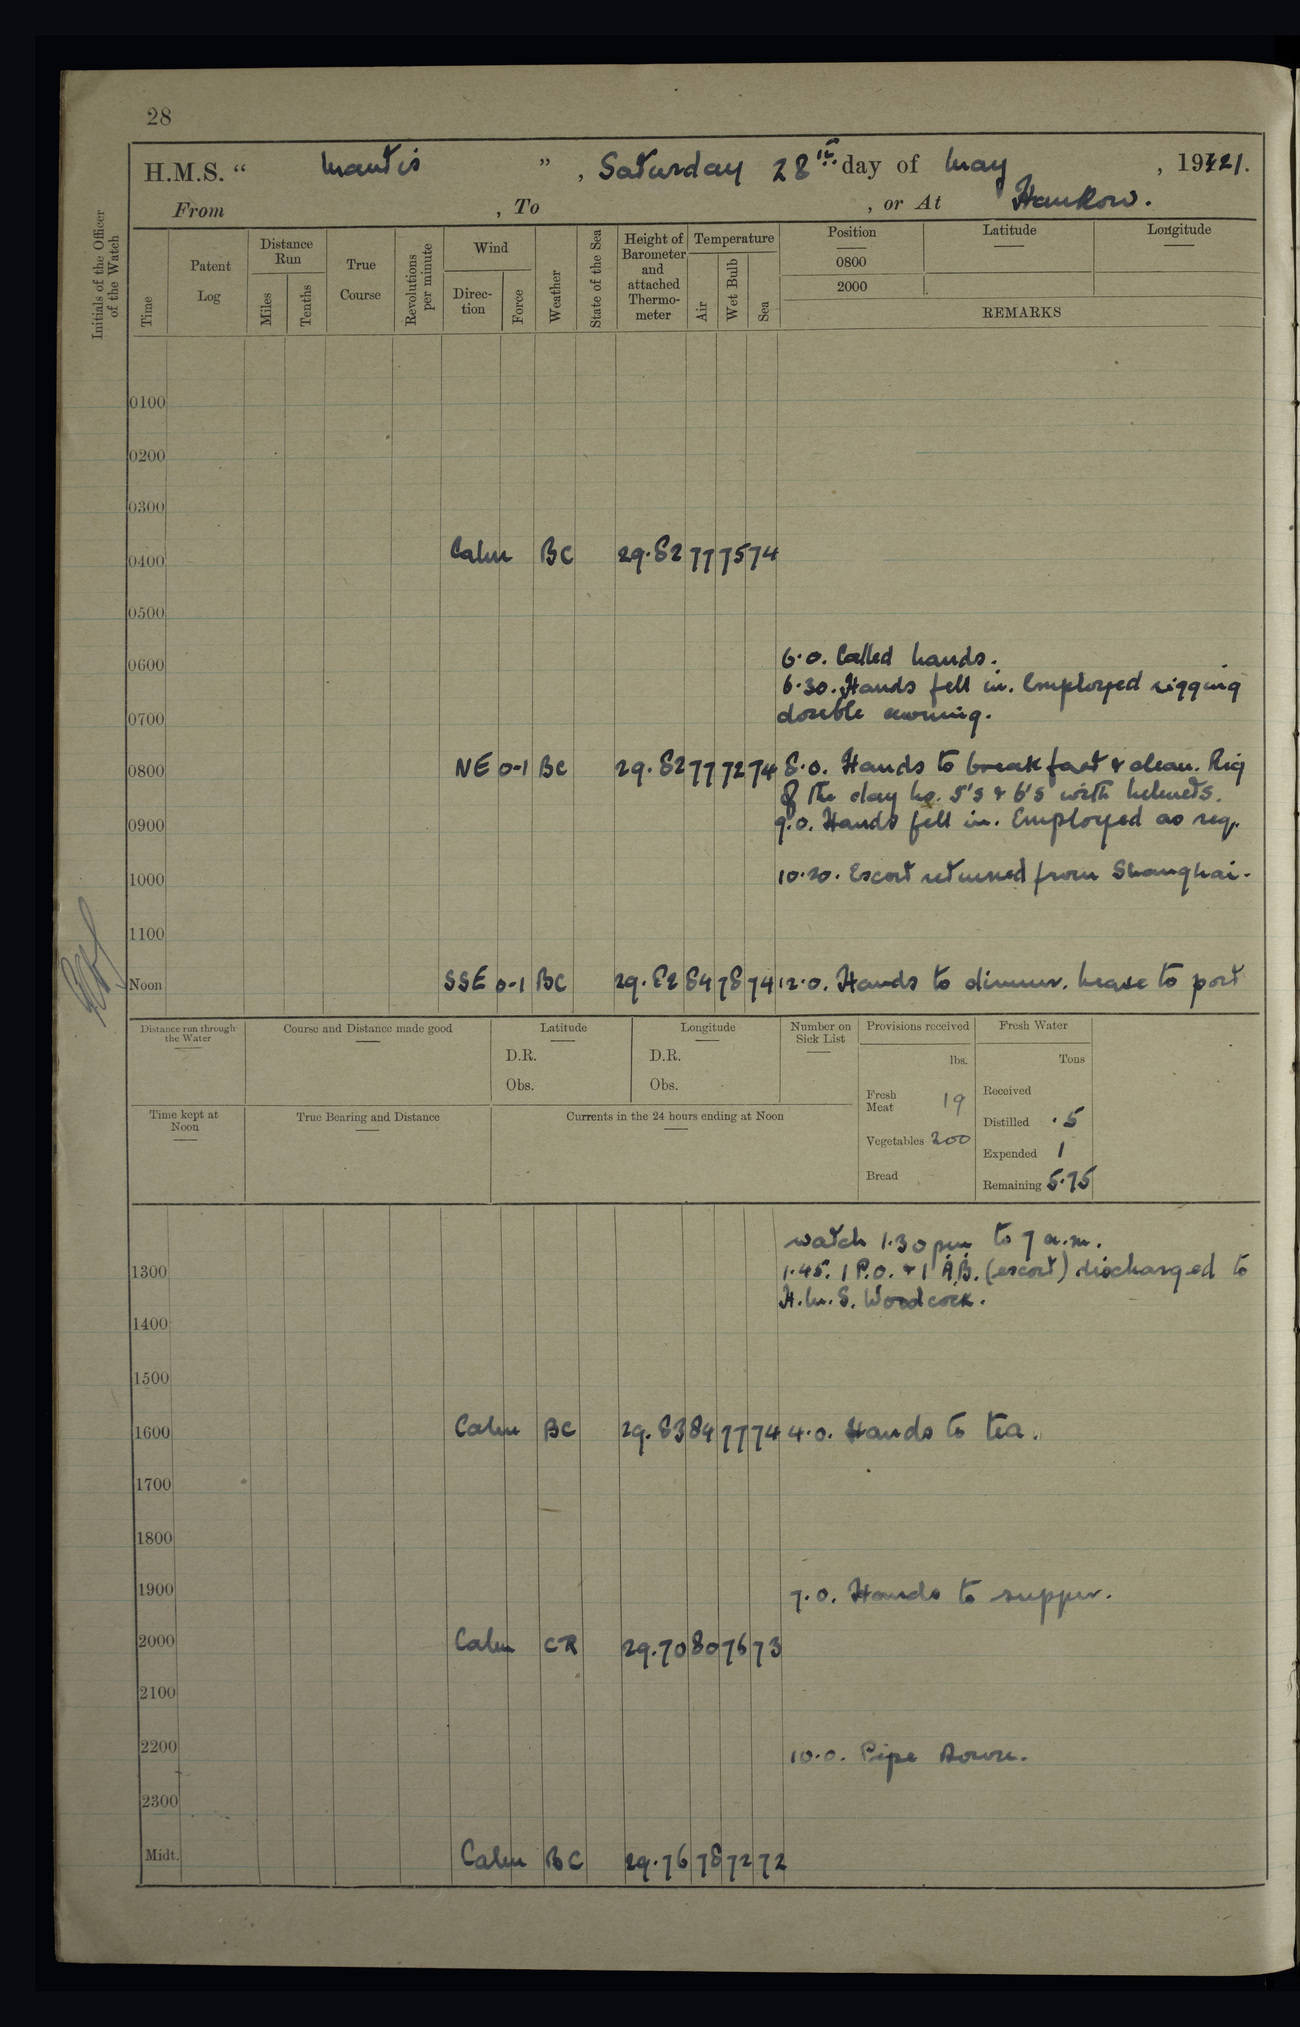 28
H.M.S. “ Mantis ” , Saturday 28th day of May , 1921.
From , To , or At Hankow.
Initials of the Officer of the Watch
Time
Patent Log
Distance Run
Miles
Tenths
True Course
Revolutions per minute
Wind
Direc-tion
Force
Weather
State of the Sea
Height of Barometer and attached Thermo-meter
Temperature
Air
Wet Bulb
Sea
Position
0800
2000
Latitude
Longitude
REMARKS
0100
0200
0300
0400 Calm BC 29.82 77 75 74
0500
0600 6.0. Called hands.
6.30. Hands fell in. Employed rigging
0700 double awning.
0800 NE 0-1 BC 29.82 77 72 74 8.0. Hands to breakfast & clean. Rig
of the day No. 5's & 6's with helmets.
0900 9.0. Hands fell in. Employed as req.
1000 10.20. Escort returned from Shanghai.
1100
Noon SSE 0-1 BC 29.82 84 78 74 12.0. Hands to dinner. Leave to port
Distance run through the Water
Course and Distance made good
Latitude
D.R.
Obs.
Longitude
D.R.
Obs.
Number on Sick List
Provisions received
lbs.
Fresh Meat 19
Vegetables 200
Bread
Fresh Water
Tons
Received
Distilled .5
Expended 1
Remaining 5.75
Time kept at Noon
True Bearing and Distance
Currents in the 24 hours ending at Noon
watch 1.30 pm to 7 a.m.
1300 1.45. 1 P.O. & 1 A.B. (escort) discharged to
H.M.S. Woodcock.
1400
1500
1600 Calm BC 29.83 84 77 74 4.0. Hands to tea.
1700
1800
1900 7.0. Hands to supper.
2000 Calm CR 29.70 80 76 73
2100
2200 10.0. Pipe Down.
2300
Midt. Calm BC 29.76 78 72 72